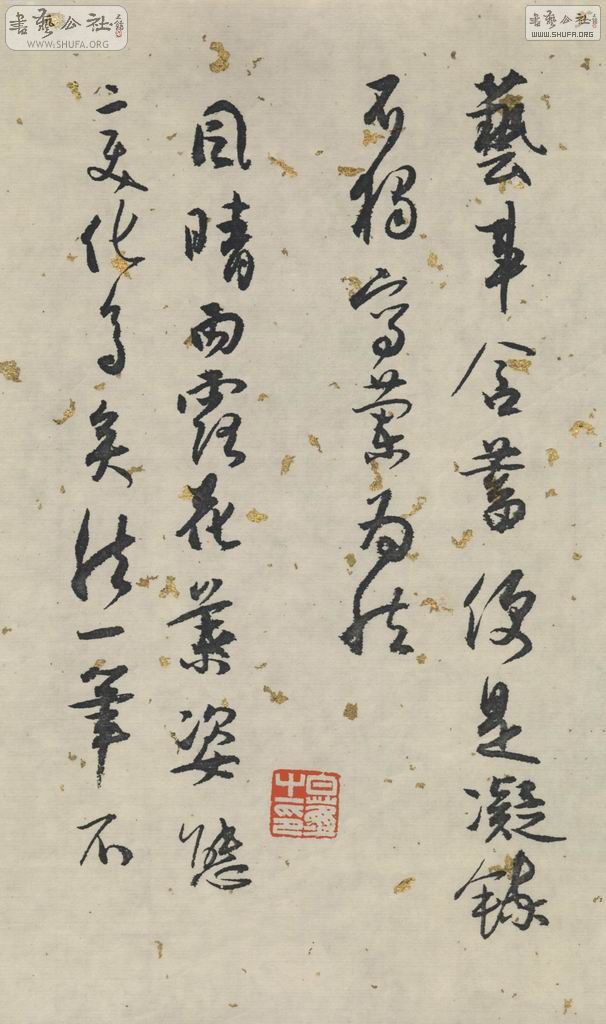 書藝公社
WWW.SHUFA.ORG
書藝公社
WWW.SHUFA.ORG
藝事含蓄便是凝鍊
不獨寫蘭為然
風晴雨露花葉姿態
之變化多矣然一筆不